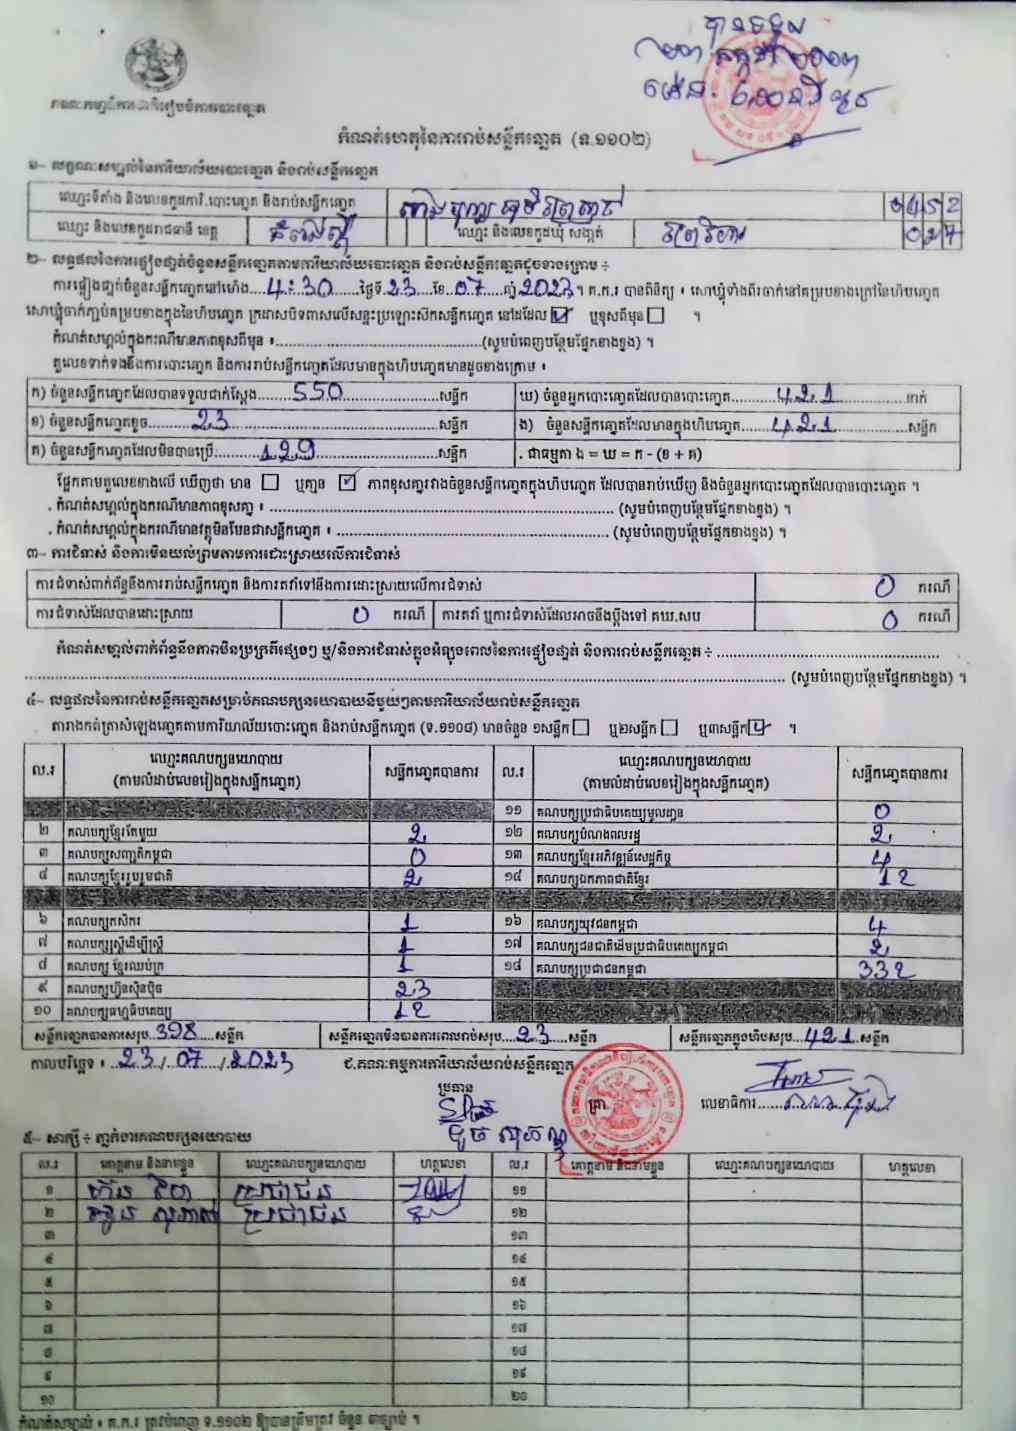 បានទទួល
គណៈកម្មាធិការជាតិរៀបចំការបោះឆ្នោត
កំណត់ហេតុនៃការរាប់សន្លឹកឆ្នោត (ទ.១១០២)
១- លក្ខណៈសម្គាល់នៃការិយាល័យបោះឆ្នោត និងរាប់សន្លឹកឆ្នោត
ឈ្មោះទីតាំង និងលេខកូដការិ.បោះឆ្នោត និងរាប់សន្លឹកឆ្នោត 0452
ឈ្មោះ និងលេខកូដរាជធានី ខេត្ត ឈ្មោះ និងលេខកូដឃុំ សង្កាត់
២- លទ្ធផលនៃការផ្ទៀងផ្ទាត់ចំនួនសន្លឹកឆ្នោតតាមការិយាល័យបោះឆ្នោត និងរាប់សន្លឹកឆ្នោតដូចខាងក្រោម ÷
ការផ្ទៀងផ្ទាត់ចំនួនសន្លឹកឆ្នោតនៅម៉ោង....4:30....ថ្ងៃទី.23...ខែ.07....ឆ្នាំ2023។ គ.ក.រ បានពិនិត្យ ៖ សោឃ្លុំទាំងពីរចាក់នៅគម្របខាងក្រៅនៃហិបឆ្នោត
សោឃ្លុំចាក់ភ្ជាប់គម្របខាងក្នុងនៃហិបឆ្នោត ក្រដាសបិទពាសលើសន្ទះប្រឡោះសិកសន្លឹកឆ្នោត នៅដដែល ☑ ឬខុសពីមុន ☐ ។
កំណត់សម្គាល់ក្នុងករណីមានភាពខុសពីមុន ៖..................(សូមបំពេញបន្ថែមផ្នែកខាងខ្នង) ។
តួលេខទាក់ទងនឹងការបោះឆ្នោត និងការរាប់សន្លឹកឆ្នោតដែលមានក្នុងហិបឆ្នោតមានដូចខាងក្រោម ៖
ក) ចំនួនសន្លឹកឆ្នោតដែលបានទទួលជាក់ស្តែង.......550.......សន្លឹក ឃ) ចំនួនអ្នកបោះឆ្នោតដែលបានបោះឆ្នោត.......421.......នាក់
ខ) ចំនួនសន្លឹកឆ្នោតខូច.......23.......សន្លឹក ង) ចំនួនសន្លឹកឆ្នោតដែលមានក្នុងហិបឆ្នោត.......421.......សន្លឹក
គ) ចំនួនសន្លឹកឆ្នោតដែលមិនបានប្រើ.......129.......សន្លឹក . ជាធម្មតា ង = ឃ = ក - (ខ + គ)
ផ្អែកតាមតួលេខខាងលើ ឃើញថា មាន ☐ ឬគ្មាន ☑ ភាពខុសគ្នារវាងចំនួនសន្លឹកឆ្នោតក្នុងហិបឆ្នោត ដែលបានរាប់ឃើញ និងចំនួនអ្នកបោះឆ្នោតដែលបានបោះឆ្នោត ។
. កំណត់សម្គាល់ក្នុងករណីមានភាពខុសគ្នា ៖ .................. (សូមបំពេញបន្ថែមផ្នែកខាងខ្នង) ។
. កំណត់សម្គាល់ក្នុងករណីមានវត្ថុមិនមែនជាសន្លឹកឆ្នោត ៖ .................. (សូមបំពេញបន្ថែមផ្នែកខាងខ្នង) ។
៣- ការជំទាស់ និងការមិនយល់ព្រមតាមការដោះស្រាយលើការជំទាស់
ការជំទាស់ពាក់ព័ន្ធនឹងការរាប់សន្លឹកឆ្នោត និងការតវ៉ាទៅនឹងការដោះស្រាយលើការជំទាស់ 0 ករណី
ការជំទាស់ដែលបានដោះស្រាយ 0 ករណី ការតវ៉ា ឬការជំទាស់ដែលអាចនឹងប្តឹងទៅ គឃ.សប 0 ករណី
កំណត់សម្គាល់ពាក់ព័ន្ធនឹងភាពមិនប្រក្រតីផ្សេងៗ ឬ/និងការជំទាស់ក្នុងអំឡុងពេលនៃការផ្ទៀងផ្ទាត់ និងការរាប់សន្លឹកឆ្នោត ÷ ..................
.................. (សូមបំពេញបន្ថែមផ្នែកខាងខ្នង) ។
៤- លទ្ធផលនៃការរាប់សន្លឹកឆ្នោតសម្រាប់គណបក្សនយោបាយនីមួយៗតាមការិយាល័យរាប់សន្លឹកឆ្នោត
តារាងកត់ត្រាសំឡេងឆ្នោតតាមការិយាល័យបោះឆ្នោត និងរាប់សន្លឹកឆ្នោត (ទ.១១០៨) មានចំនួន ១សន្លឹក ☐ ឬ២សន្លឹក ☐ ឬ៣សន្លឹក ☑ ។
ល.រ ឈ្មោះគណបក្សនយោបាយ (តាមលំដាប់លេខរៀងក្នុងសន្លឹកឆ្នោត) សន្លឹកឆ្នោតបានការ ល.រ ឈ្មោះគណបក្សនយោបាយ (តាមលំដាប់លេខរៀងក្នុងសន្លឹកឆ្នោត) សន្លឹកឆ្នោតបានការ
១១ គណបក្សប្រជាធិបតេយ្យមូលដ្ឋាន 0
២ គណបក្សខ្មែរតែមួយ 2 ១២ គណបក្សបំណងពលរដ្ឋ 2
៣ គណបក្សសញ្ជាតិកម្ពុជា 0 ១៣ គណបក្សខ្មែរអភិវឌ្ឍន៍សេដ្ឋកិច្ច 4
៤ គណបក្សខ្មែររួបរួមជាតិ 2 ១៤ គណបក្សឯកភាពជាតិខ្មែរ 12
៦ គណបក្សកសិករ 1 ១៦ គណបក្សយុវជនកម្ពុជា 4
៧ គណបក្សស្ត្រីដើម្បីស្ត្រី 1 ១៧ គណបក្សជនជាតិដើមប្រជាធិបតេយ្យកម្ពុជា 2
៨ គណបក្ស ខ្មែរឈប់ក្រ 1 ១៨ គណបក្សប្រជាជនកម្ពុជា 332
៩ គណបក្សហ្វ៊ុនស៊ិនប៉ិច 23
១០ គណបក្សធម្មាធិបតេយ្យ 12
សន្លឹកឆ្នោតបានការសរុប.398....សន្លឹក សន្លឹកឆ្នោតមិនបានការពេលរាប់សរុប....23....សន្លឹក សន្លឹកឆ្នោតក្នុងហិបសរុប...421...សន្លឹក
កាលបរិច្ឆេទ ៖ ..23./.07../..2023 ជ.គណៈកម្មការការិយាល័យរាប់សន្លឹកឆ្នោត
ប្រធាន
ត្រា លេខាធិការ
៥- សាក្សី ÷ ភ្នាក់ងារគណបក្សនយោបាយ
ល.រ គោត្តនាម និងនាមខ្លួន ឈ្មោះគណបក្សនយោបាយ ហត្ថលេខា ល.រ គោត្តនាម និងនាមខ្លួន ឈ្មោះគណបក្សនយោបាយ ហត្ថលេខា
១ ប្រជាជន ១១
២ ប្រជាជន ១២
៣ ១៣
៤ ១៤
៥ ១៥
៦ ១៦
៧ ១៧
៨ ១៨
៩ ១៩
១០ ២០
កំណត់សម្គាល់ ៖ គ.ក.រ ត្រូវបំពេញ ទ.១១០២ ឱ្យបានត្រឹមត្រូវ ចំនួន ៣ច្បាប់ ។